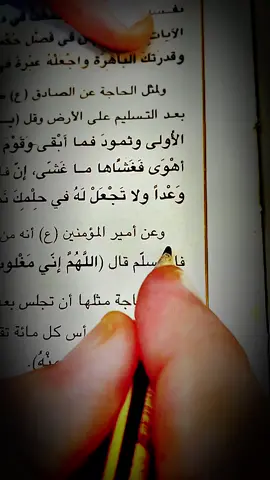 الآيات في فصل
وقدرتك الباهرة واجعله عبرة في
ولمثل الحاجة عن الصادق (ع)
بعد التسليم على الأرض وقل (يـ
الأُولى وثمودَ فما أبْقى وَقَوْمَ
أهْوَى فَغَشَّاها ما غَشّى، إنّ
وَعْداً ولا تَجْعَلْ لَهُ في حِلْمِكَ
وعن أمير المؤمنين (ع) أنه من
قال (اللّهُمَّ إنّي مَغْلو
حاجة مثلها أن تجلس بعد
أس كل مائة